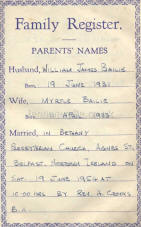 Family Register.
PARENTS' NAMES
Husband, WILLIAM JAMES BAILIE
Born 19 JUNE 193
Wife, MYRTLE BAILIE
APRIL 1933
Married, IN BETHANY
PRESBYTERIAN CHURCH, AGNES ST.
BELFAST, NORTHERN IRELAND ON
SAT. 19 JUNE 1954 AT
10.00 HRS BY REV. A. CROOKS
B.A.